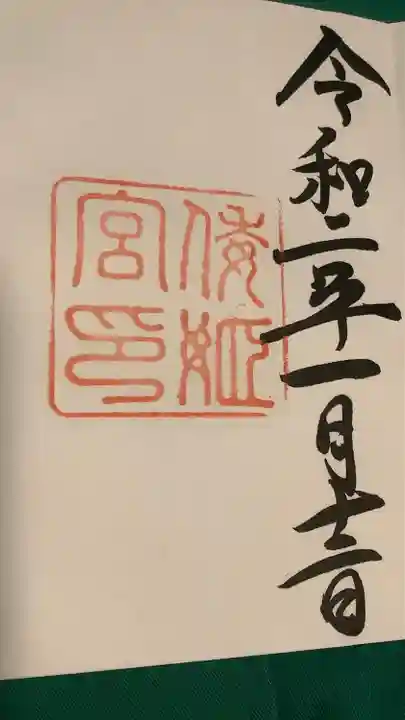 令和二年一月十二日
倭姫
宮印